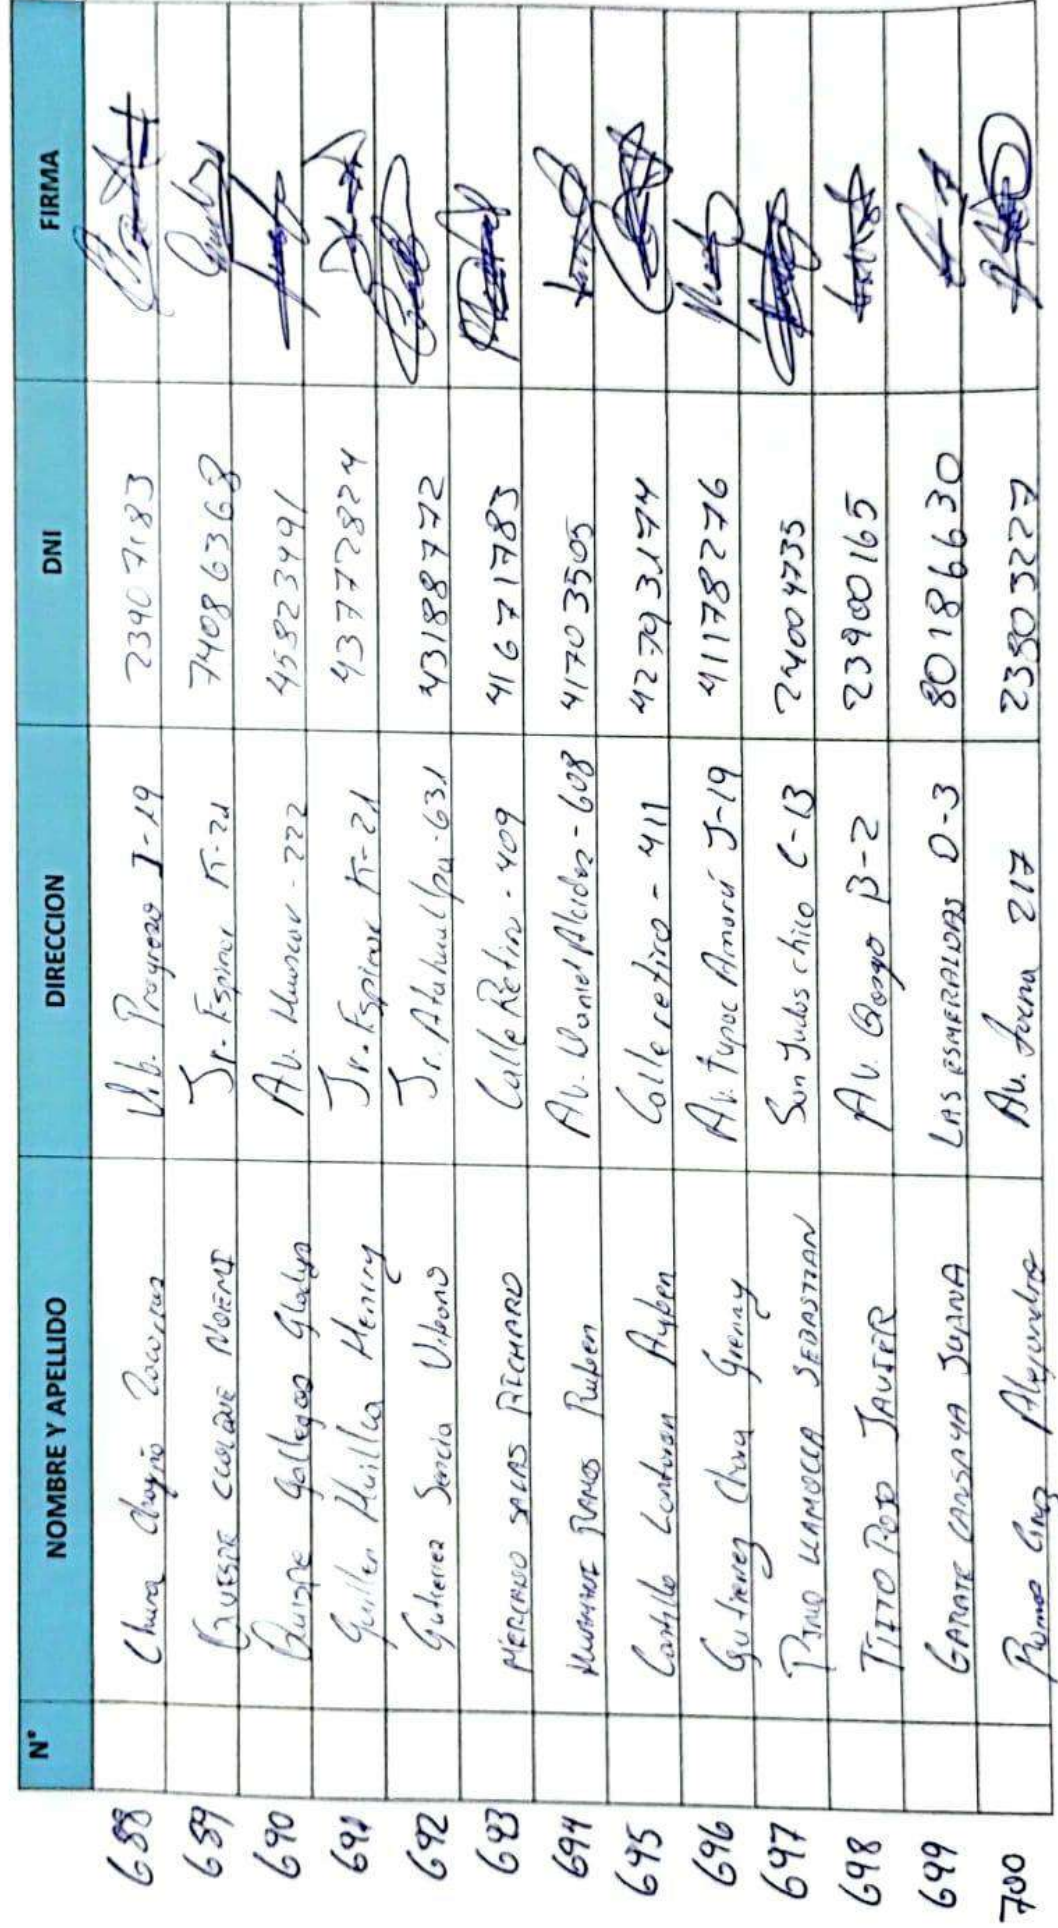 N° NOMBRE Y APELLIDO DIRECCION DNI FIRMA
688 Chura Zacarias Urb. Progreso I-19 23907183
689 QUESPE CCOLQUE NOEMI Jr. Espinar K-21 74086368
690 Quispe Gallegos Gladys Av. Huascar - 222 45823491
691 Guillen Huillca Henrry Jr. Espinar K-21 437772824
692 Gutierrez Sencia Vibano Jr. Atahuallpa - 631 43188772
693 MERCADO SALAS RICHARD Calle Retiro - 409 41671785
694 HUAMANI RAMOS Ruben Av. Daniel Alcides - 608 41703505
695 Castillo Ayben Calle retiro - 411 42793174
696 Gutierrez Chura Grenny Av. Tupac Amarú J-19 41178276
697 PINO LLAMOCCA SEBASTIAN San Judas chico C-13 24004735
698 TITTO POZO JAVIER Av. Qosqo B-2 23900165
699 GARATE CANSAYA JUANA LAS ESMERALDAS D-3 80186630
700 Ramos Alejandro Av. 217 23803227